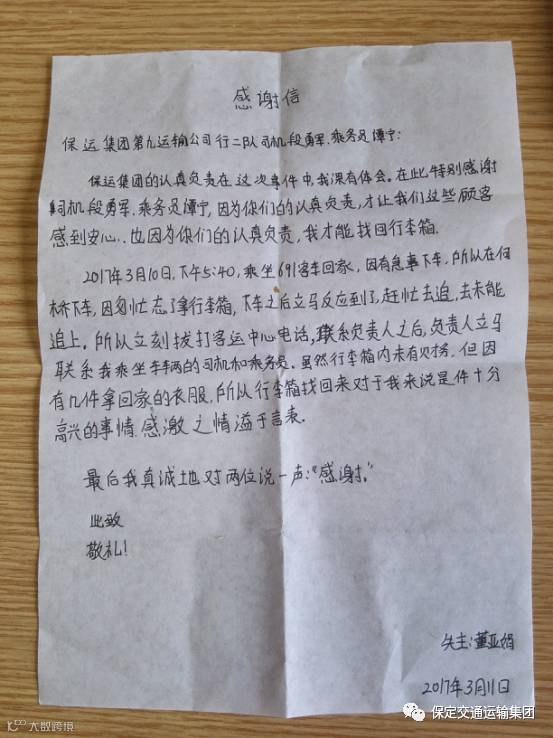 感谢信
保运集团第九运输公司行二队司机段勇军.乘务员谭宁:
保运集团的认真负责在这次事件中,我深有体会.在此,特别感谢
司机段勇军.乘务员谭宁,因为你们的认真负责,才让我们这些顾客
感到安心.也因为你们的认真负责,我才能找回行李箱.
2017年3月10日,下午5:40,乘坐691客车回家,因有急事下车,所以在何
桥下车,因匆忙忘了拿行李箱,下车之后立马反应到了,赶忙去追,去未能
追上.所以立刻拔打客运中心电话,联系负责人之后,负责人立马
联系我乘坐车辆的司机和乘务员.虽然行李箱内未有财物,但因
有几件拿回家的衣服,所以行李箱找回来对于我来说是件十分
高兴的事情.感激之情溢于言表.
最后我真诚地对两位说一声:"感谢."
此致
敬礼!
失主:董亚娟
2017年3月11日
保定交通运输集团
大数跨境